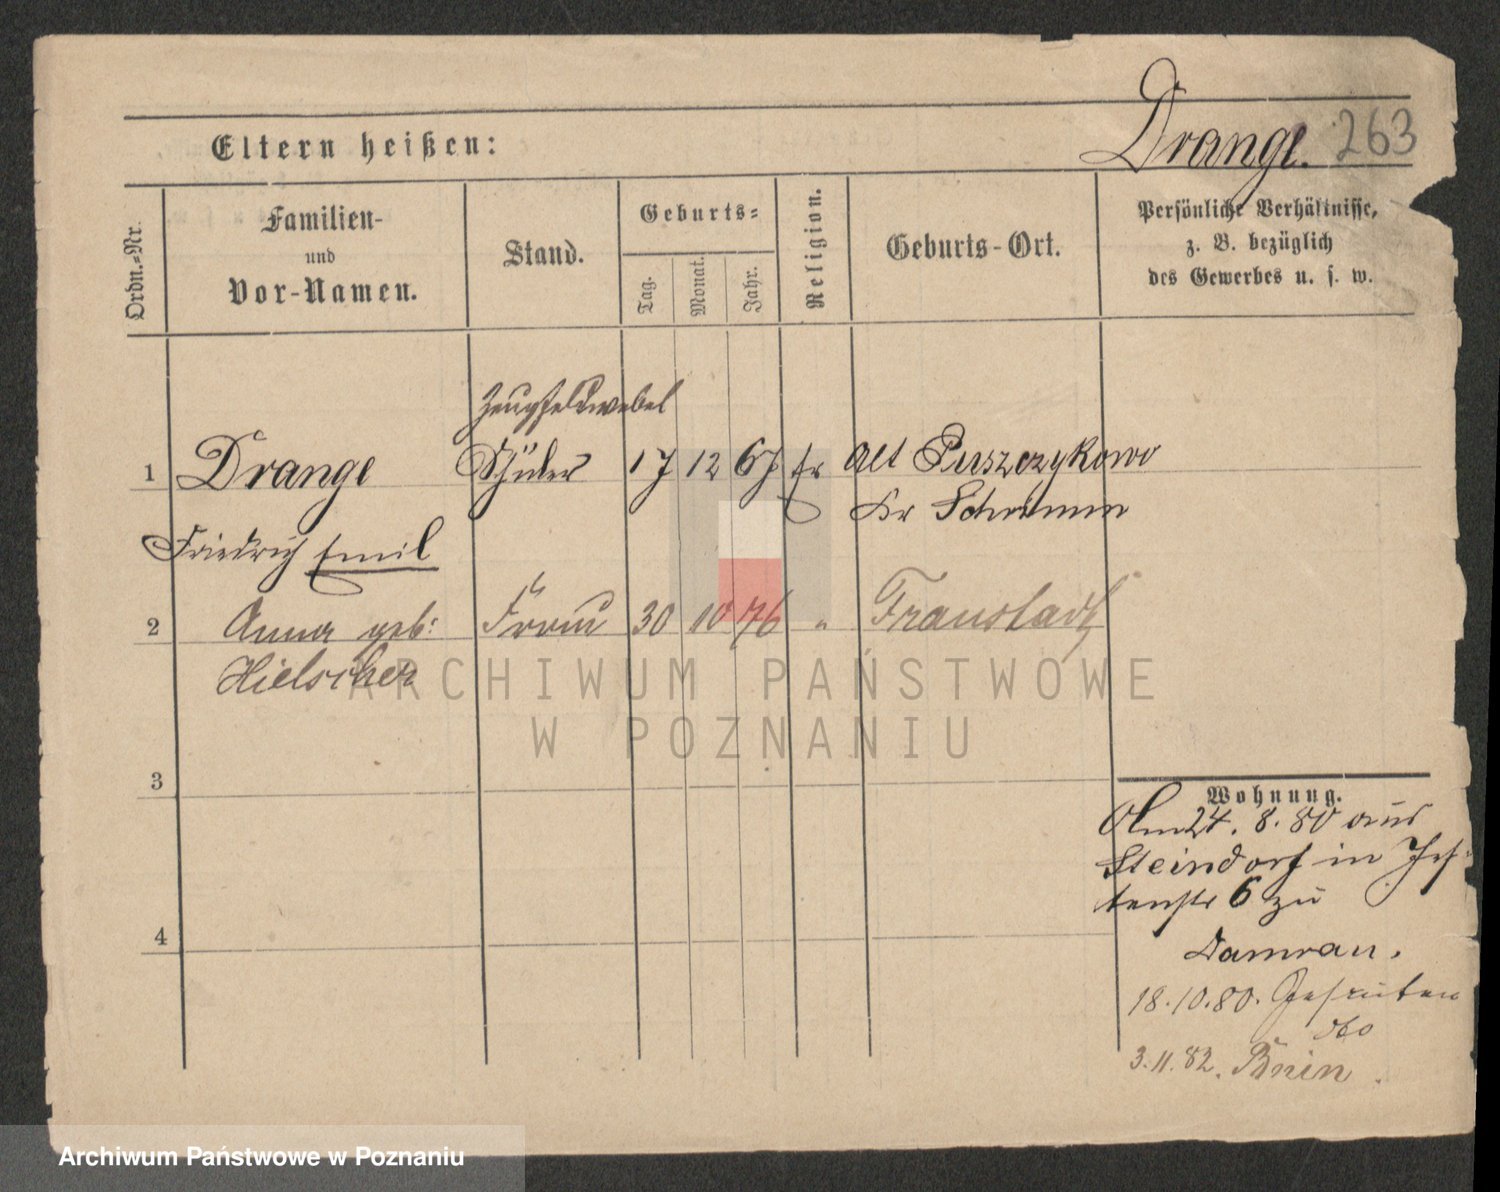 Drange. 263
Eltern heißen:
Ordn.-Nr.
Familien-
und
Vor-Namen.
Stand.
Geburts-
Tag.
Monat.
Jahr.
Religion.
Geburts-Ort.
Persönliche Verhältnisse,
z. B. bezüglich
des Gewerbes u. s. w.
Zeugfeldwebel
1 Drange Schüler 17 12 67 Ev Alt Puszczykowo
Kr Schrimm
Friedrich Emil
2 Anna geb: Frau 30 10 76 " Fraustadt
Hielscher
3
4
Wohnung.
Am 24. 8. 80 aus
Steindorf in
6 zu
Damrau.
18.10.80. Jesuiten
3.11.82. Bnin
ARCHIWUM PAŃSTWOWE
W POZNANIU
Archiwum Państwowe w Poznaniu